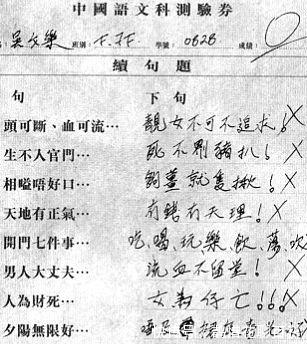 中國語文科測驗券
吳文樂 班別: F.3F 學號: 0828 成績: 0
續句題
句 下句
頭可斷、血可流… 靚女不可不追求! X
生不入官門… 死不劏豬扒! X
相嗌唔好口… 劏薑就隻揪! X
天地有正氣… 有錢有天理! X
開門七件事… 吃、喝、玩、樂、飲、蕩、吹
男人大丈夫… 流血不留堂! X
人為財死… 女為仔亡!!! X
夕陽無限好…